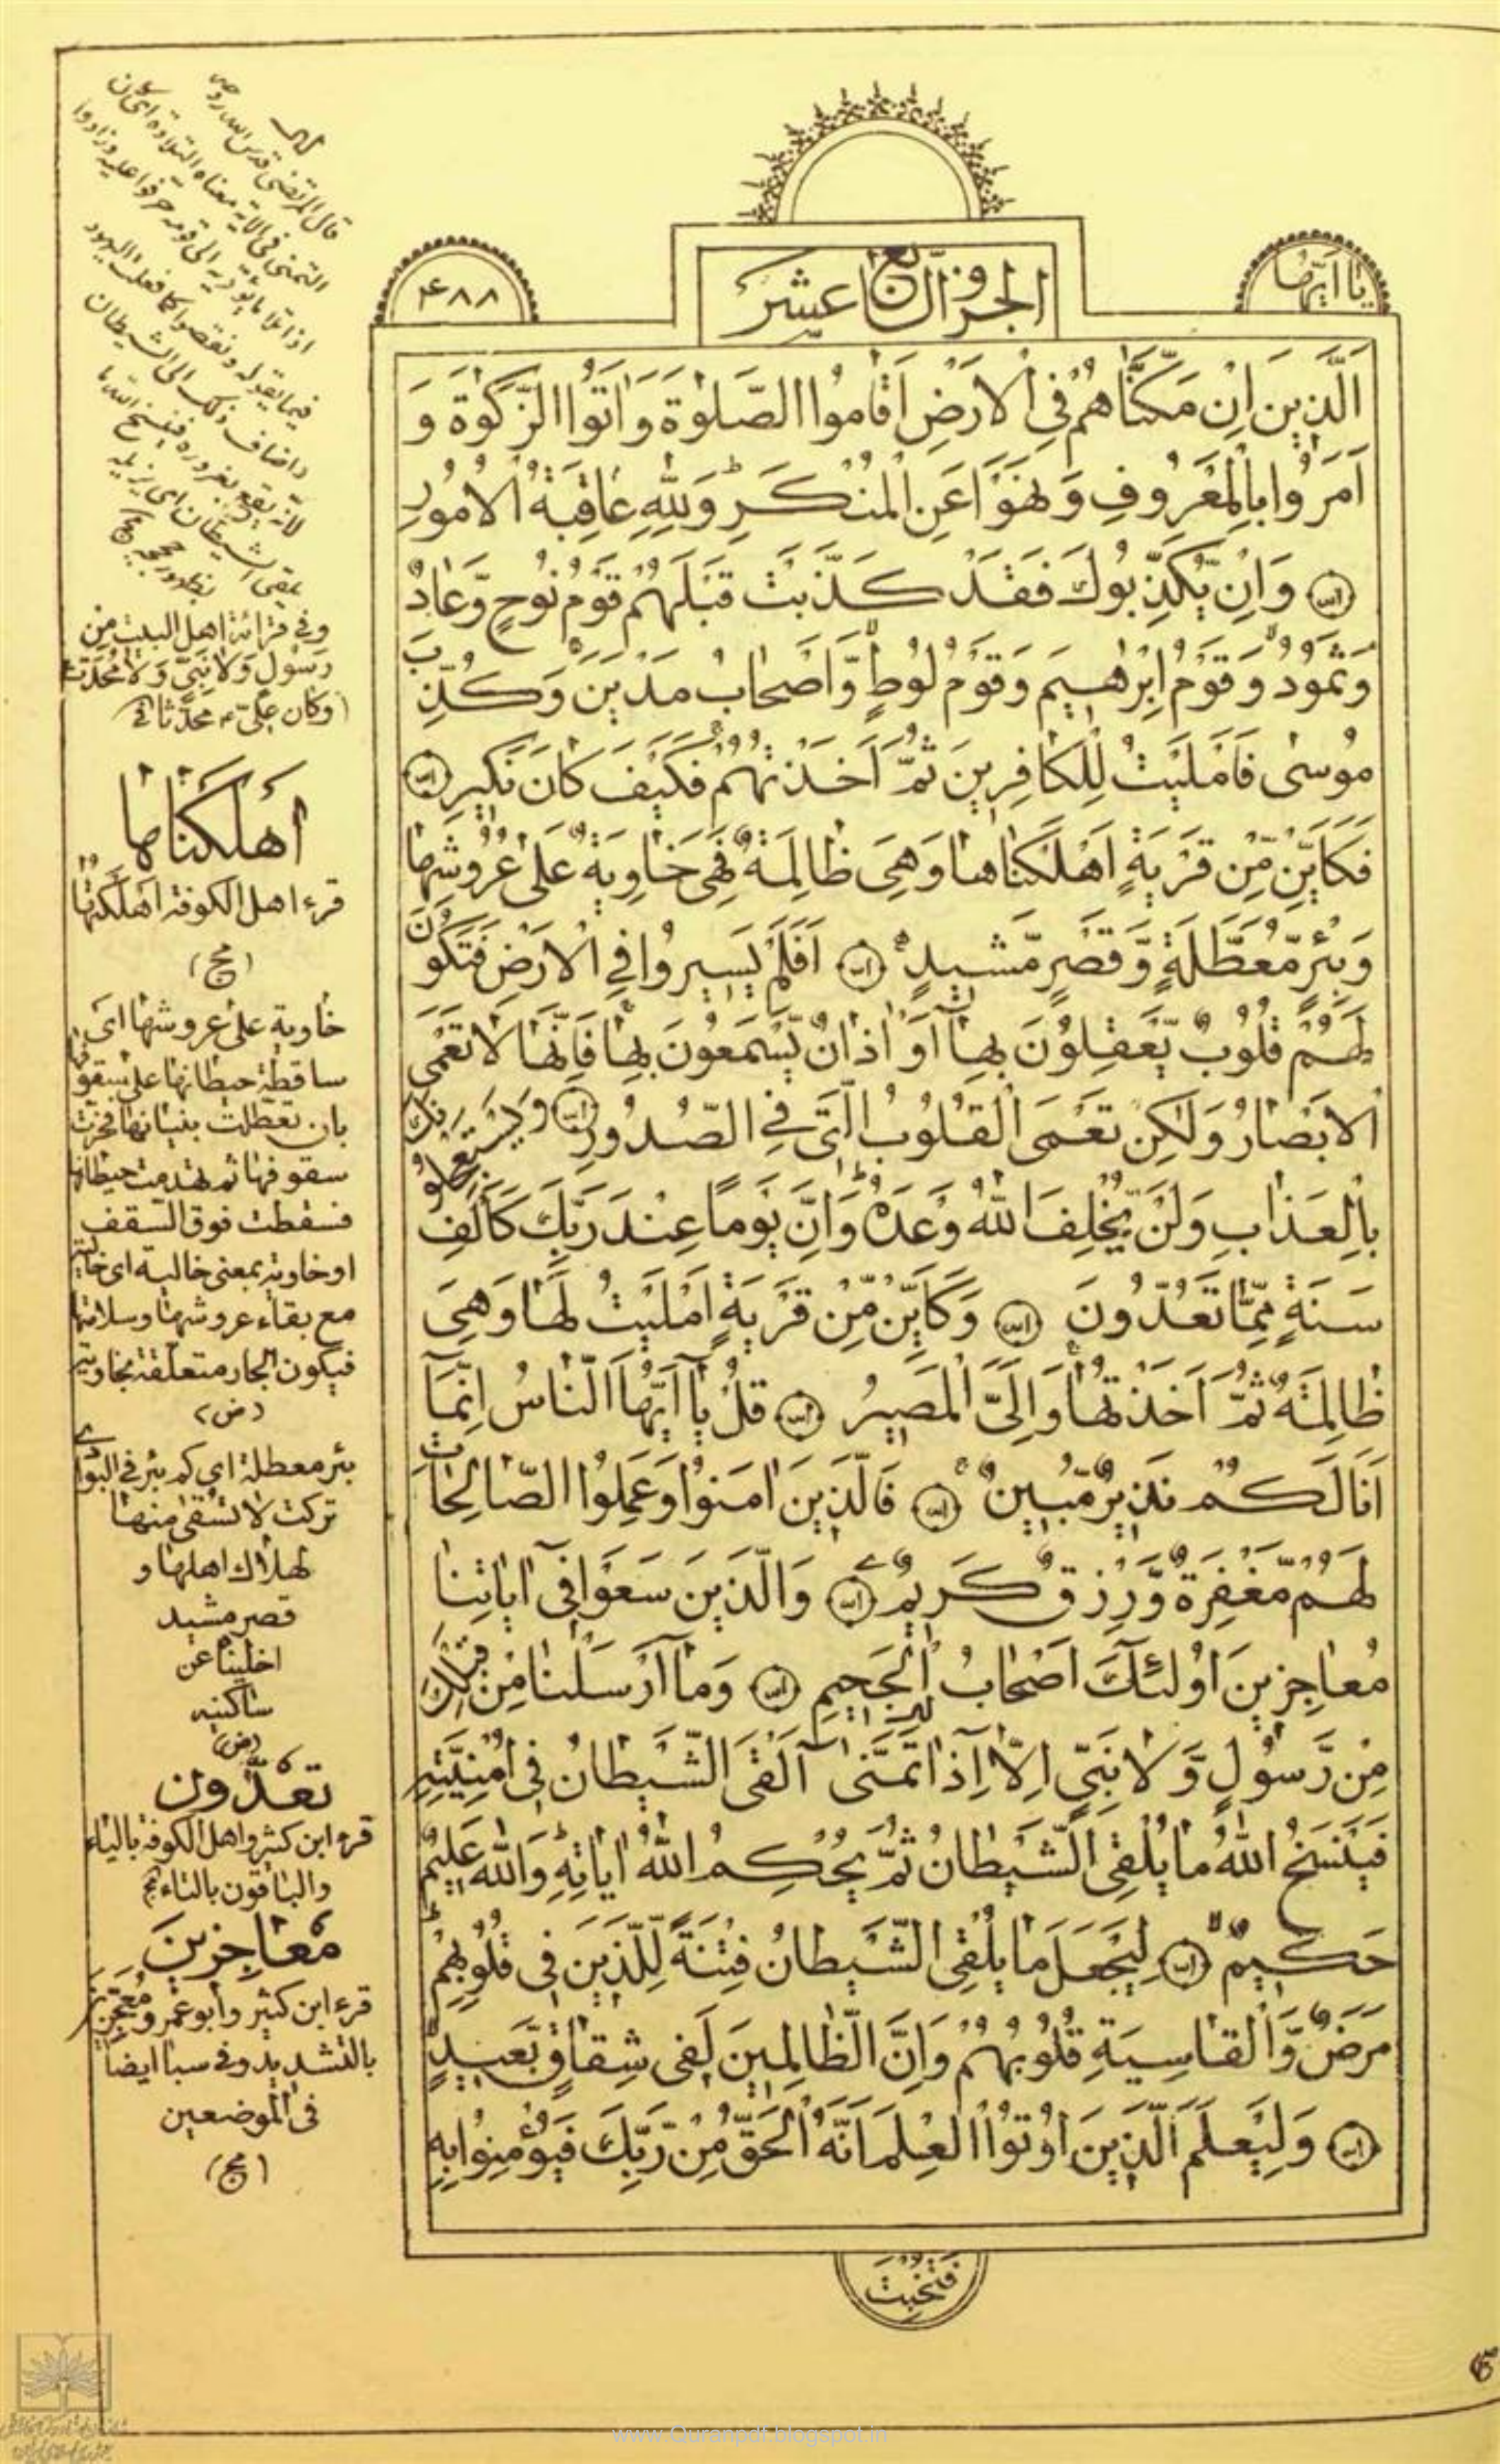 يا ايها
الجزؤ السابع عشر
۴۸۸
اَلَّذِينَ اِنْ مَكَّنَّاهُمْ فِي الْاَرْضِ اَقَامُوا الصَّلٰوةَ وَاٰتَوُا الزَّكٰوةَ وَ
اَمَرُوا بِالْمَعْرُوفِ وَنَهَوْا عَنِ الْمُنْكَرِ ۗ وَلِلّٰهِ عَاقِبَةُ الْاُمُورِ
وَاِنْ يُكَذِّبُوكَ فَقَدْ كَذَّبَتْ قَبْلَهُمْ قَوْمُ نُوحٍ وَّعَادٌ
وَثَمُودُ وَقَوْمُ اِبْرٰهِيمَ وَقَوْمُ لُوطٍ وَّاَصْحَابُ مَدْيَنَ وَكُذِّبَ
مُوسٰى فَاَمْلَيْتُ لِلْكَافِرِينَ ثُمَّ اَخَذْتُهُمْ فَكَيْفَ كَانَ نَكِيرِ
فَكَاَيِّنْ مِّنْ قَرْيَةٍ اَهْلَكْنَاهَا وَهِيَ ظَالِمَةٌ فَهِيَ خَاوِيَةٌ عَلٰى عُرُوشِهَا
وَبِئْرٍ مُّعَطَّلَةٍ وَّقَصْرٍ مَّشِيدٍ اَفَلَمْ يَسِيرُوا فِي الْاَرْضِ فَتَكُونَ
لَهُمْ قُلُوبٌ يَّعْقِلُونَ بِهَا اَوْ اٰذَانٌ يَّسْمَعُونَ بِهَا فَاِنَّهَا لَا تَعْمَى
الْاَبْصَارُ وَلٰكِنْ تَعْمَى الْقُلُوبُ الَّتِي فِي الصُّدُورِ وَيَسْتَعْجِلُونَكَ
بِالْعَذَابِ وَلَنْ يُّخْلِفَ اللّٰهُ وَعْدَهُ ۗ وَاِنَّ يَوْمًا عِنْدَ رَبِّكَ كَاَلْفِ
سَنَةٍ مِّمَّا تَعُدُّونَ وَكَاَيِّنْ مِّنْ قَرْيَةٍ اَمْلَيْتُ لَهَا وَهِيَ
ظَالِمَةٌ ثُمَّ اَخَذْتُهَا وَاِلَيَّ الْمَصِيرُ قُلْ يَا اَيُّهَا النَّاسُ اِنَّمَا
اَنَا لَكُمْ نَذِيرٌ مُّبِينٌ فَالَّذِينَ اٰمَنُوا وَعَمِلُوا الصَّالِحَاتِ
لَهُمْ مَّغْفِرَةٌ وَّرِزْقٌ كَرِيمٌ وَالَّذِينَ سَعَوْا فِي اٰيَاتِنَا
مُعَاجِزِينَ اُولٰئِكَ اَصْحَابُ الْجَحِيمِ وَمَا اَرْسَلْنَا مِنْ قَبْلِكَ
مِنْ رَّسُولٍ وَّلَا نَبِيٍّ اِلَّا اِذَا تَمَنّٰى اَلْقَى الشَّيْطَانُ فِي اُمْنِيَّتِهِ
فَيَنْسَخُ اللّٰهُ مَا يُلْقِي الشَّيْطَانُ ثُمَّ يُحْكِمُ اللّٰهُ اٰيَاتِهِ ۗ وَاللّٰهُ عَلِيمٌ
حَكِيمٌ لِيَجْعَلَ مَا يُلْقِي الشَّيْطَانُ فِتْنَةً لِّلَّذِينَ فِي قُلُوبِهِمْ
مَرَضٌ وَّالْقَاسِيَةِ قُلُوبُهُمْ وَاِنَّ الظَّالِمِينَ لَفِي شِقَاقٍ بَعِيدٍ
وَلِيَعْلَمَ الَّذِينَ اُوتُوا الْعِلْمَ اَنَّهُ الْحَقُّ مِنْ رَّبِّكَ فَيُؤْمِنُوا بِهِ
فتخبت
وفي قرائة اهل البيت من
رسول ولا نبي ولا محدث
اهلكناها
قرء اهل الكوفة اهلكناها
(مج)
خاوية على عروشها اى
ساقطة حيطانها على سقوفها
بان تعطلت بنيانها فخرت
سقوفها ثم تهدمت حيطانها
فسقطت فوق السقف
او خاوية بمعنى خالية اى خالية
مع بقاء عروشها وسلامتها
فيكون الجار متعلقة بخاوية
(ض)
بئر معطلة اى كم بئر في البوادى
تركت لا تسقى منها
لهلاك اهلها و
قصر مشيد
اخليناه عن
ساكنيه
(ض)
تعدّون
قرء ابن كثير واهل الكوفة بالياء
والباقون بالتاء
معاجزين
قرء ابن كثير وابو عمرو معجزين
بالتشديد وفي سبا ايضا
في الموضعين
(مج)
www.Quranpdf.blogspot.in